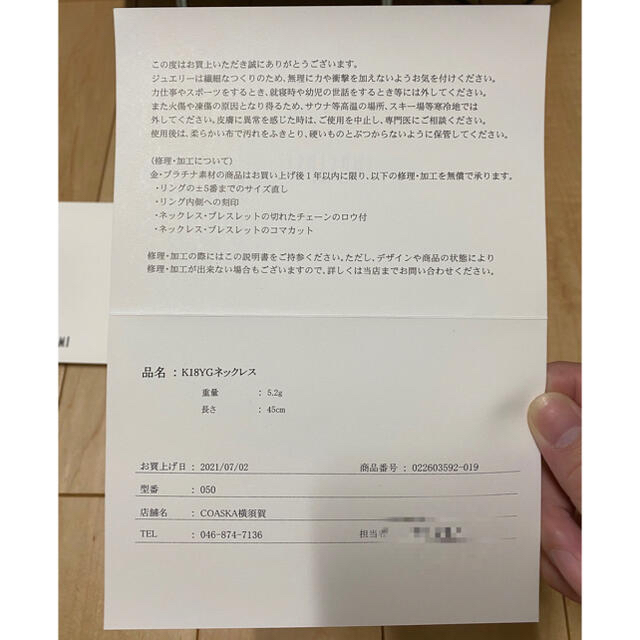 この度はお買上いただき誠にありがとうございます。
ジュエリーは繊細なつくりのため、無理に力や衝撃を加えないようお気を付けください。
力仕事やスポーツをするとき、就寝時や幼児の世話をするとき等には外してください。
また火傷や凍傷の原因となり得るため、サウナ等高温の場所、スキー場等寒冷地では
外してください。皮膚に異常を感じた時は、ご使用を中止し、専門医にご相談ください。
使用後は、柔らかい布で汚れをふきとり、硬いものとぶつからないように保管してください。
(修理・加工について)
金・プラチナ素材の商品はお買い上げ後1年以内に限り、以下の修理・加工を無償で承ります。
・リングの±5番までのサイズ直し
・リング内側への刻印
・ネックレス・ブレスレットの切れたチェーンのロウ付
・ネックレス・ブレスレットのコマカット
修理・加工の際にはこの説明書をご持参ください。ただし、デザインや商品の状態により
修理・加工が出来ない場合もございますので、詳しくは当店までお問い合わせください。
品名 : K18YGネックレス
重量 : 5.2g
長さ : 45cm
お買上げ日 : 2021/07/02 商品番号 : 022603592-019
型番 : 050
店舗名 : COASKA横須賀
TEL : 046-874-7136 担当者